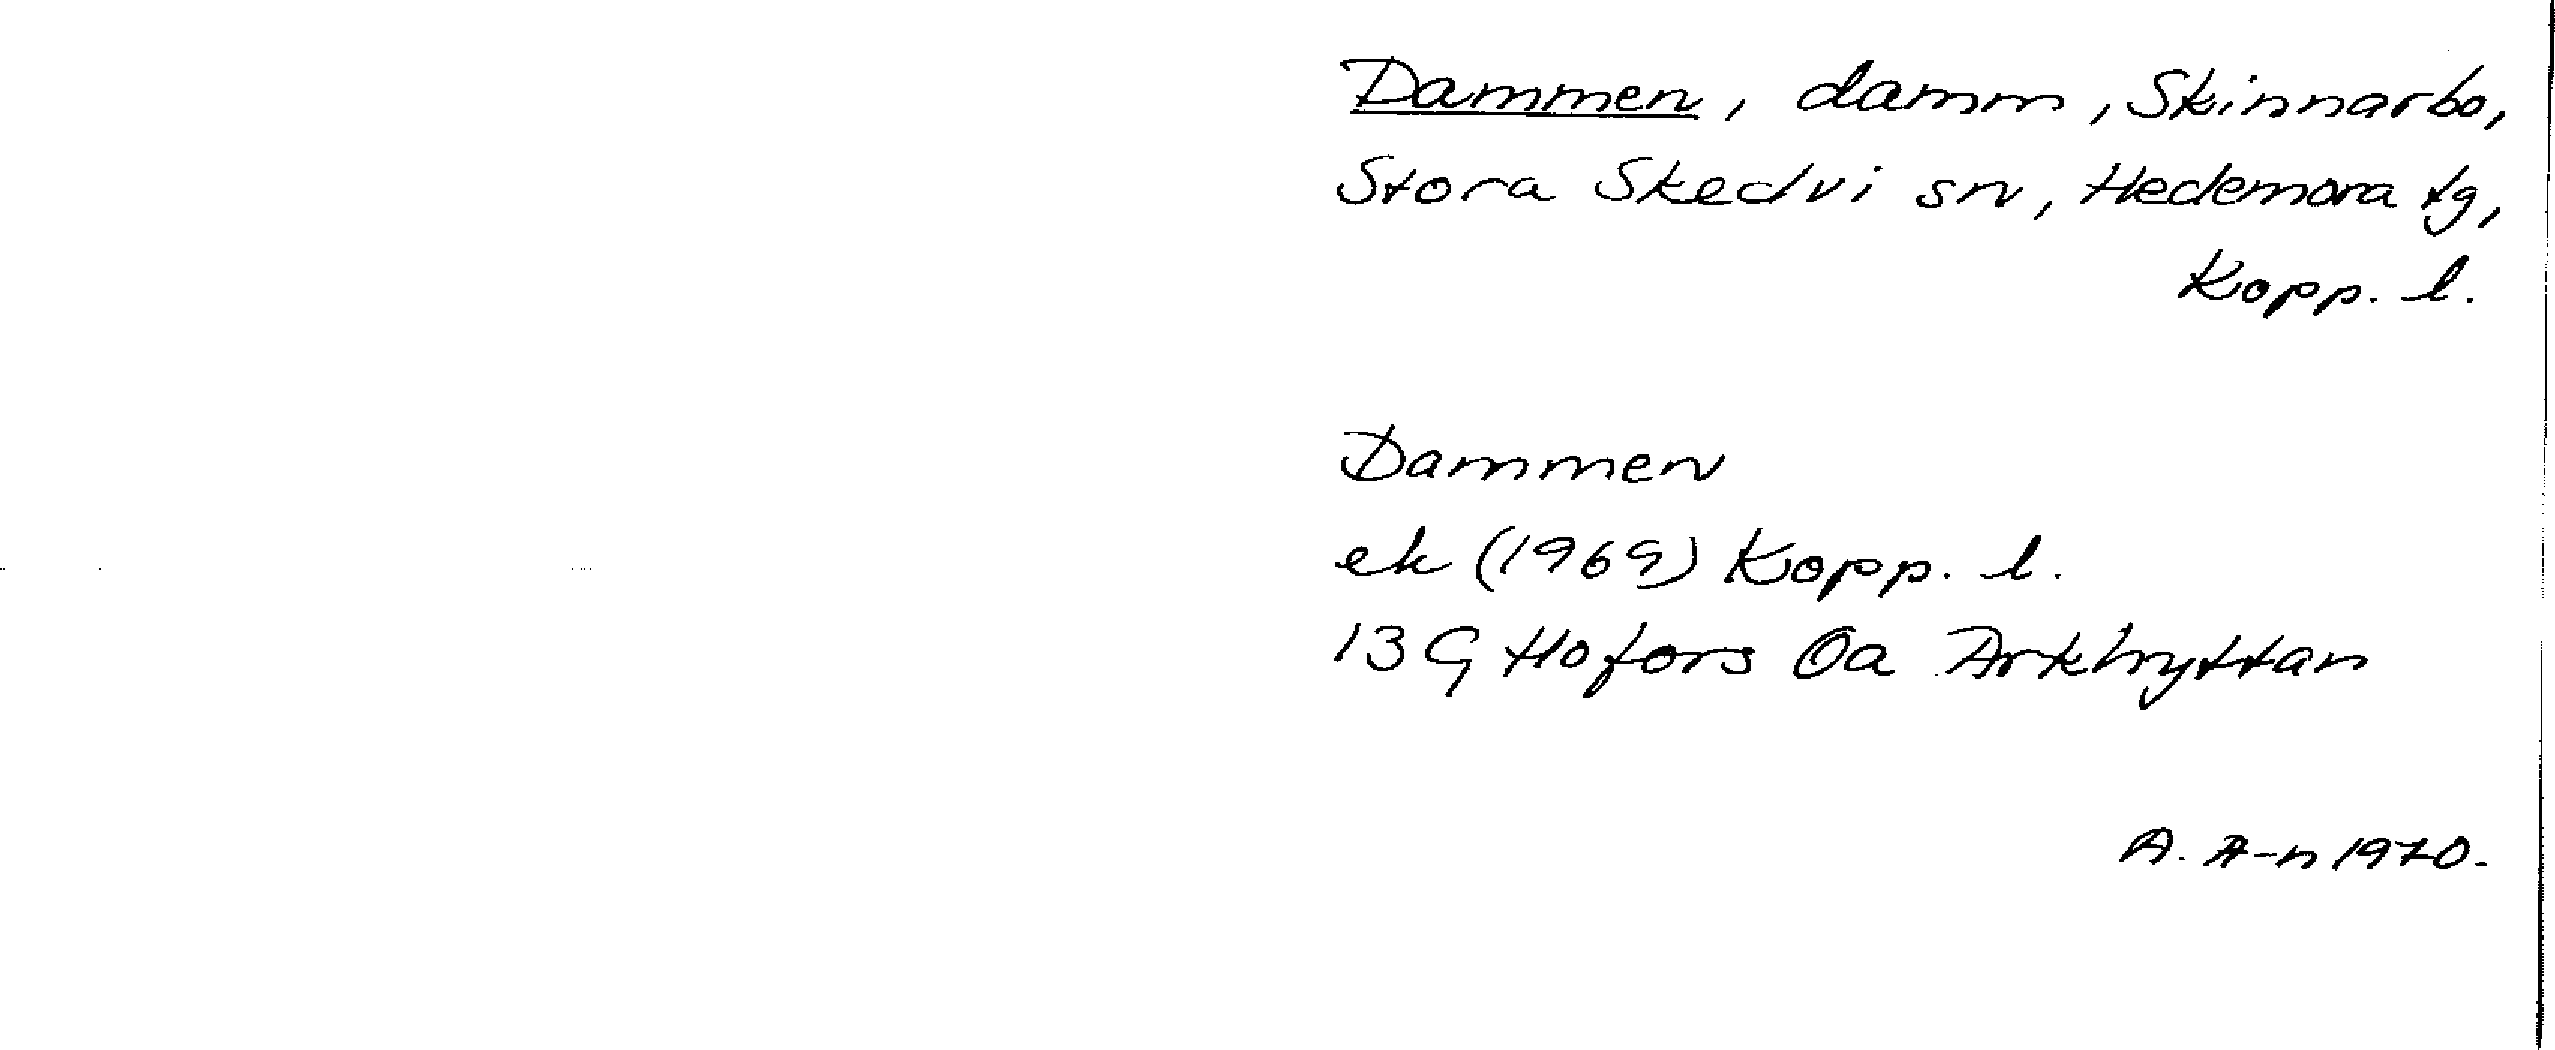 Dammen, damm, Skinnarbo,
Stora Skedvi sn, Hedemora tg,
Kopp. l.
Dammen
ek (1969) Kopp. l.
13 G Hofors 0a Arkhyttan
A. A-n 1970.